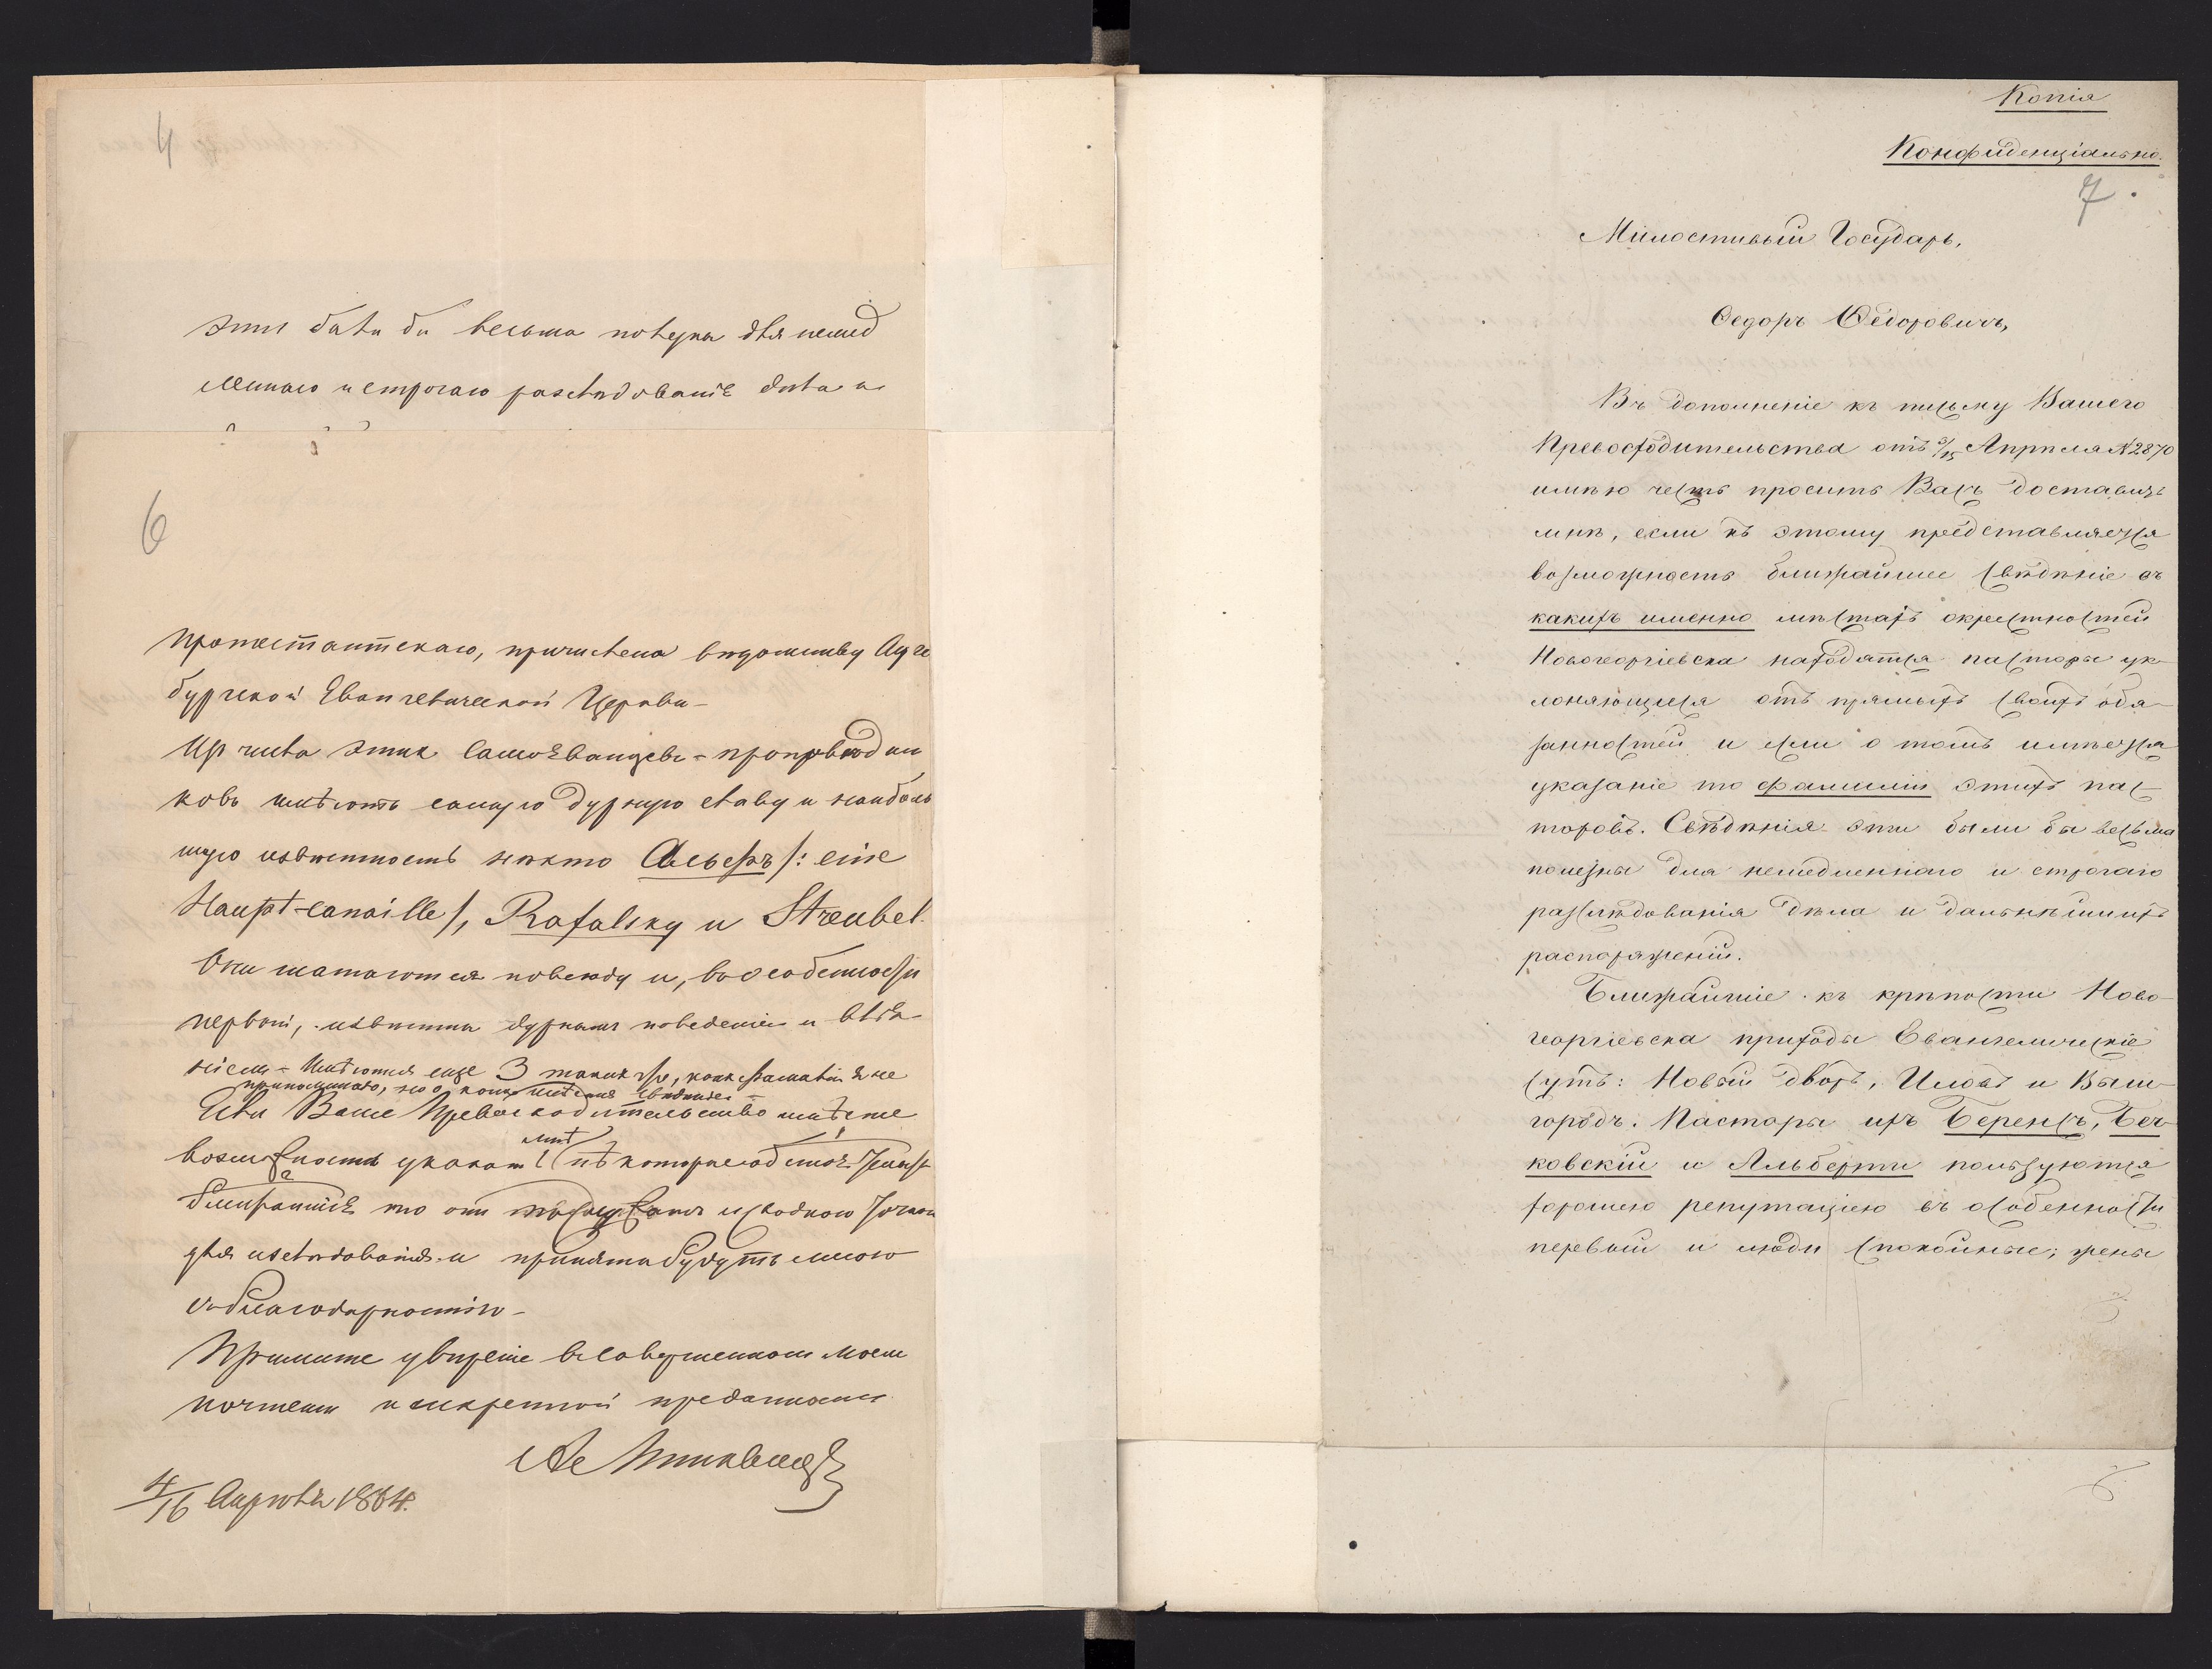 4
эти были бы весьма полезны для немед
леннаго и строгаго разслѣдованiе дѣла и
6
протестантскаго, причислена вѣдомству Аугс
бургской Евангелической Церкви –
Из числа этих самозванцевъ - проповѣдни
ковъ имѣютъ самую дурную славу и наиболь
шую извѣстность нѣкто /: eine
Haupt-canaille /, Rafalsky и Streubel.
Они шатаются повсюду и, въ особенности
первый, извѣстны дурнымъ поведенiем и
Имѣются еще 3 таких же, коих фамилiи я не
припоминаю, но о коих имѣются свѣдѣнiя –
Если Ваше Превосходительство имѣете
возможность указать мнѣ
ближайшiе то они
для изслѣдованiя и приняты будутъ мною
съ благодарностiю –
Примите увѣренiе въ совершенном моем
почтенiи и искренной преданности
4/16 Апрѣля 1864.
Копiя
Конфиденцiально.
7.
Милостивый Государь,
Ѳедоръ Ѳедоровичъ,
Въ дополненiе къ письму Вашего
Превосходительства отъ 3/15 Апрѣля № 2870
имѣю честь просить Васъ доставить
мнѣ, если къ этому представляется
возможность ближайшее свѣдѣнiе въ
какихъ именно мѣстахъ окрестностей
Новогеоргiевска находятся пасторы ук-
лоняющiеся отъ прямыхъ своихъ обя-
занностей и если о томъ имѣется
указанiе то фамилiи этихъ пас-
торовъ. Свѣдѣнiя эти были бы весьма
полезны для немедленнаго и строгаго
разслѣдованiя дѣла и дальнѣйшихъ
распоряженiй.
Ближайшiе къ крѣпости Ново-
георгiевска приходы Евангелическiе
суть: Новый дворъ, Иловъ и Выш-
городъ. Пасторы ихъ Беренсъ, Беч-
ковскiй и Альберти пользуются
хорошею репутацiею въ особенности
первый и люди спокойные; жены